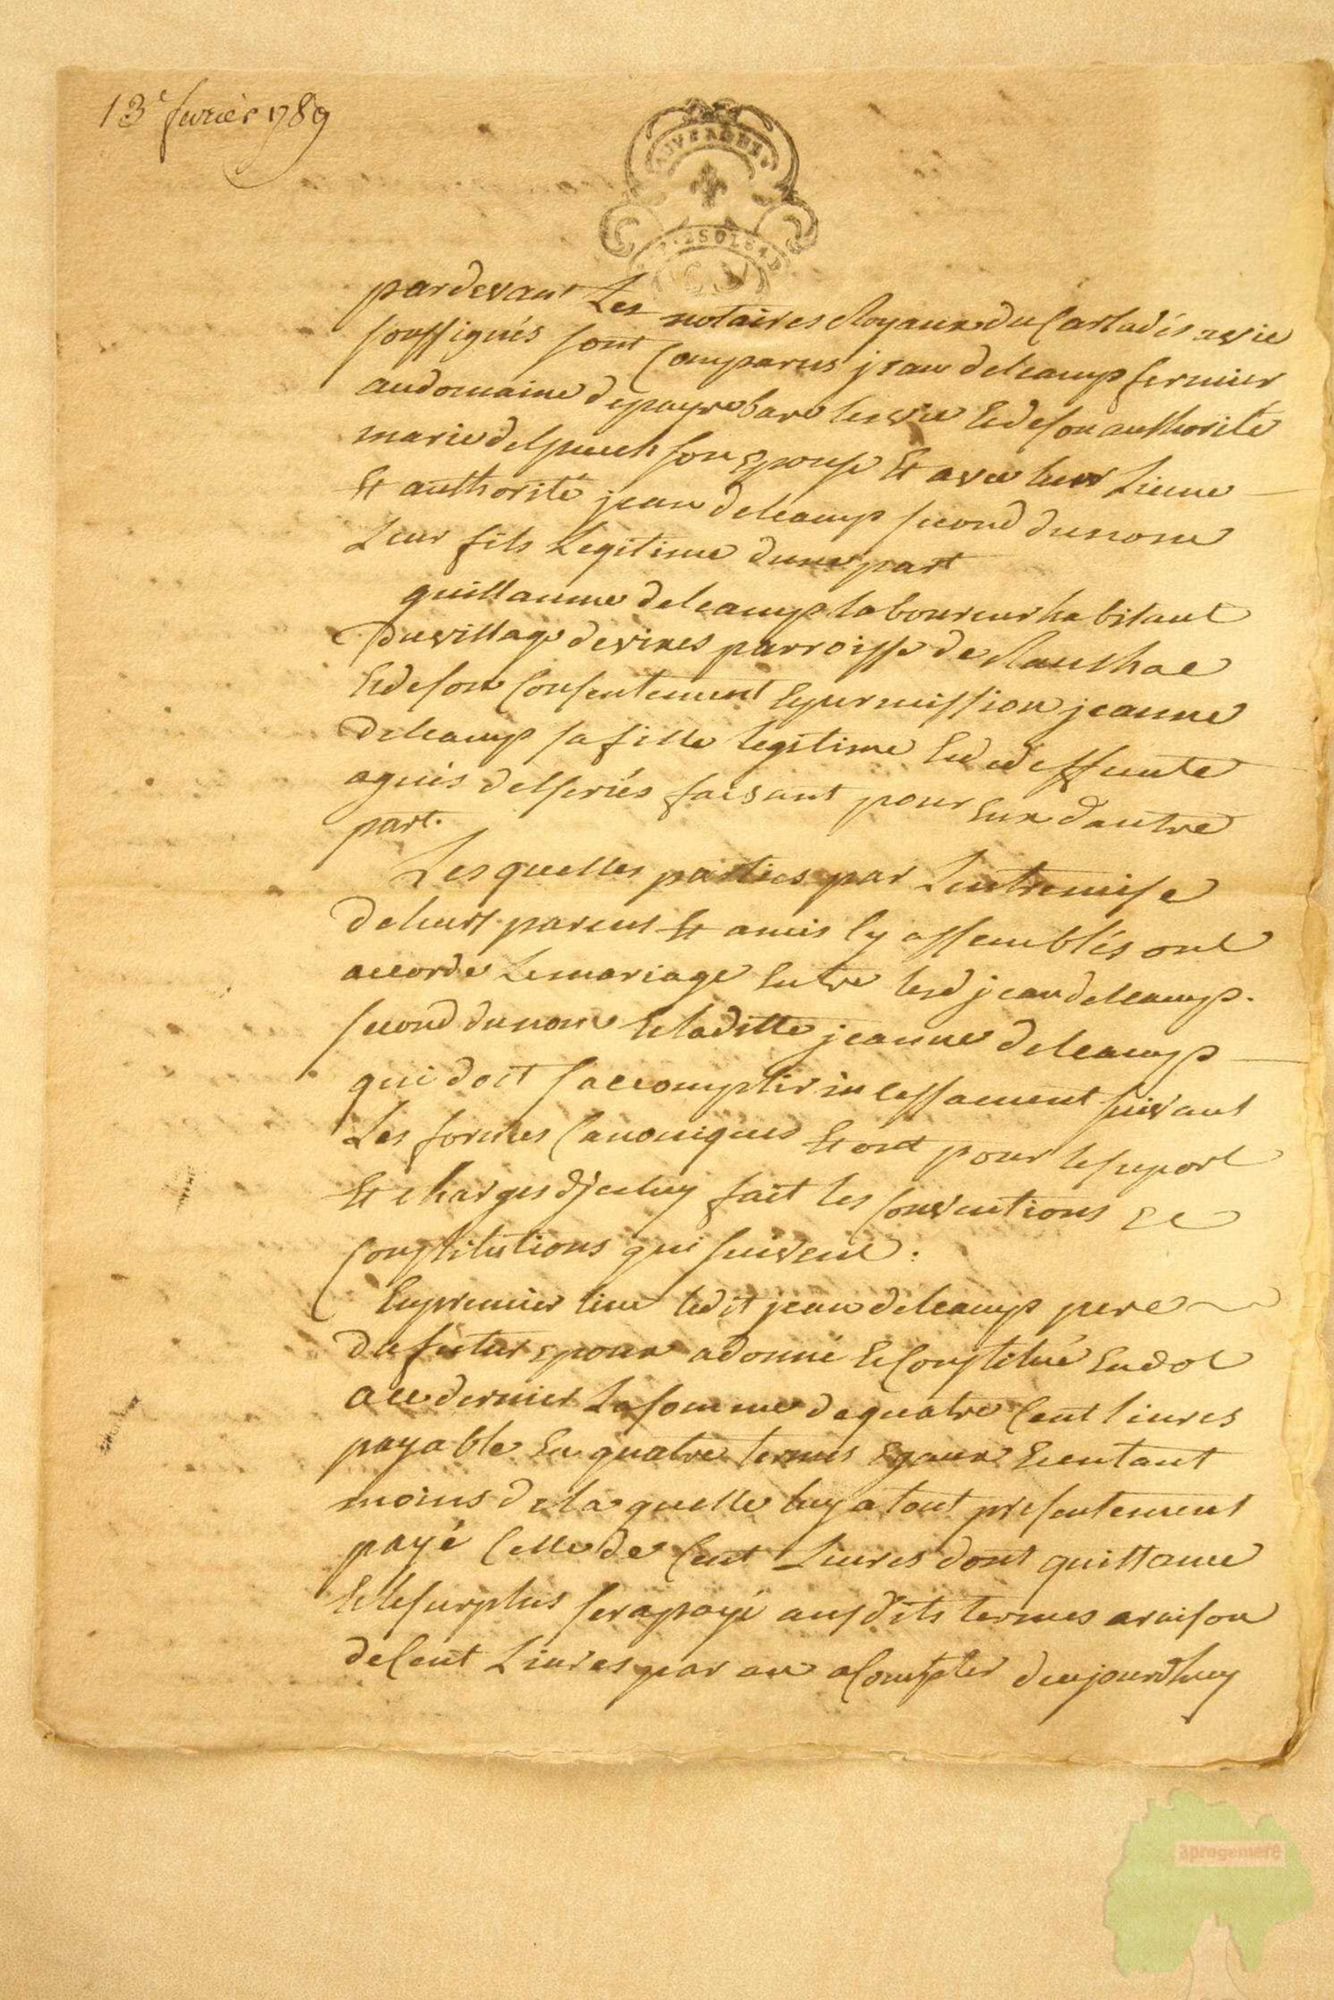 13e fevrier 1789
AUVERGNE
2 SOLS 4 D
pardevant Les notaires Royaux du Carladés a vic
soussignés sont Comparus jean delcamp fermier
au domaine de payrebare les vic Et de son authorité
marie delpuech son Epouse Et avec leur Licence
Et authorité jean delcamp second du nom
Leur fils Legitime dune part
guillaume delcamp laboureur habitant
du village de vixes parroisse de Raulhac
Et de son Consentement Et permission jeanne
delcamp sa fille legitime Et de deffunte
agnès delperiés faisant pour Eux dautre
part.
Lesquelles parties par Lentremise
de leurs parens Et amis Cy assemblés ont
accordé Le mariage Entre led jean delcamp.
second du nom Et laditte jeanne delcamp
qui doit saccomplir incessament suivant
Les formes Canoniques Et ont pour le suport
Et charges diceluy fait les Conventions Et
Constitutions qui suivent :
En premier lieu ledit jean delcamp pere
du futur Epoux a donné Et Constitué En dot
a ce dernier La somme de quatre Cent livres
payable En quatre termes Egaux Et en tant
moins de laquelle luy a tout presentement
payé Celle de Cent Livres dont quittance
Et le surplus sera payé ausdits termes a raison
de Cent Livres par an a Compter daujourdhuy
aprogemere